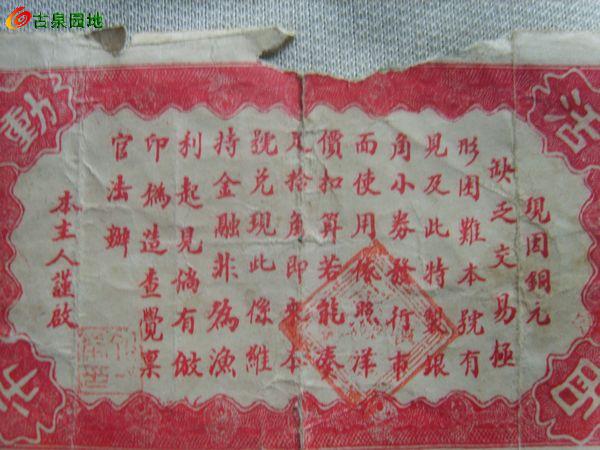 古泉园地
活動
現因銅元
缺乏交易極
形困難本號有
見及此特製銀
角小券發行市
面使用依照洋
價扣算若能湊
足拾角即來本
號兌現此係維
持金融非為漁
利起見倘有倣
印撝造查覺稟
官法辦
本主人謹啟